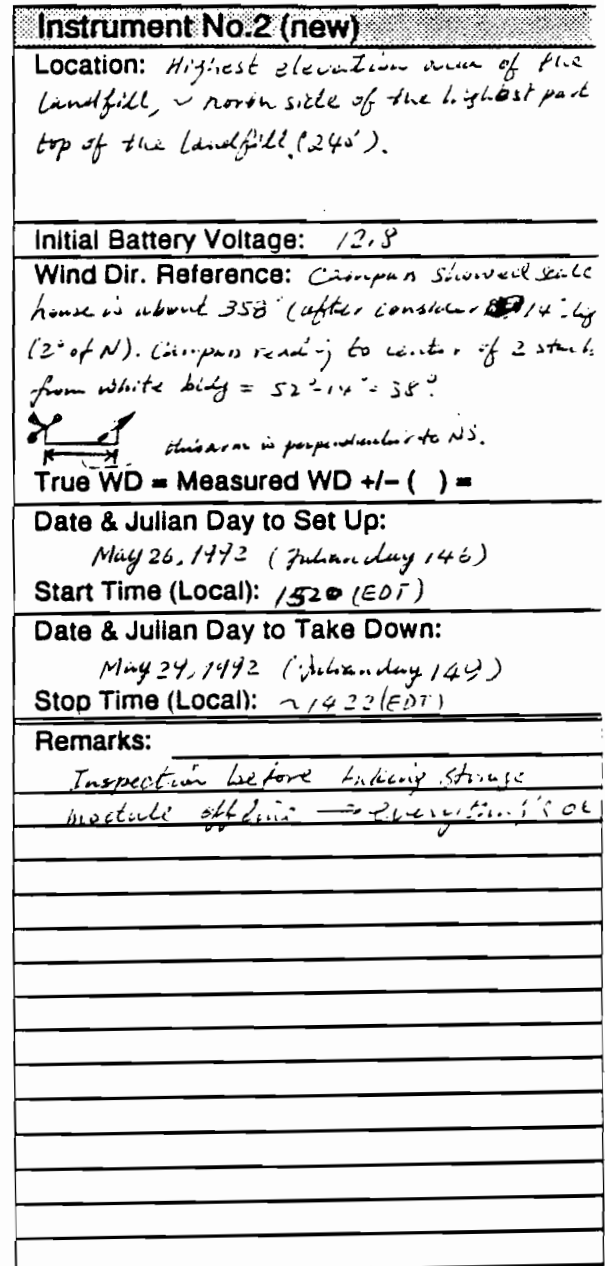 Instrument No.2 (new)
Location: Highest elevation area of the
landfill, ~ north side of the highest part
top of the landfill. (240').
Initial Battery Voltage: 12.8
Wind Dir. Reference: Compass showed scale
house is about 358° (after consider 14°
(2° of N). Compass reading to center of 2 stacks
from white bldg = 52°-14° = 38°.
this arm is perpendicular to NS.
True WD = Measured WD +/- ( ) =
Date & Julian Day to Set Up:
May 26, 1992 (Julian day 146)
Start Time (Local): 1520 (EDT)
Date & Julian Day to Take Down:
May 29, 1992 (Julian day 149)
Stop Time (Local): ~1422 (EDT)
Remarks:
Inspection before taking storage
module off → everything's OK